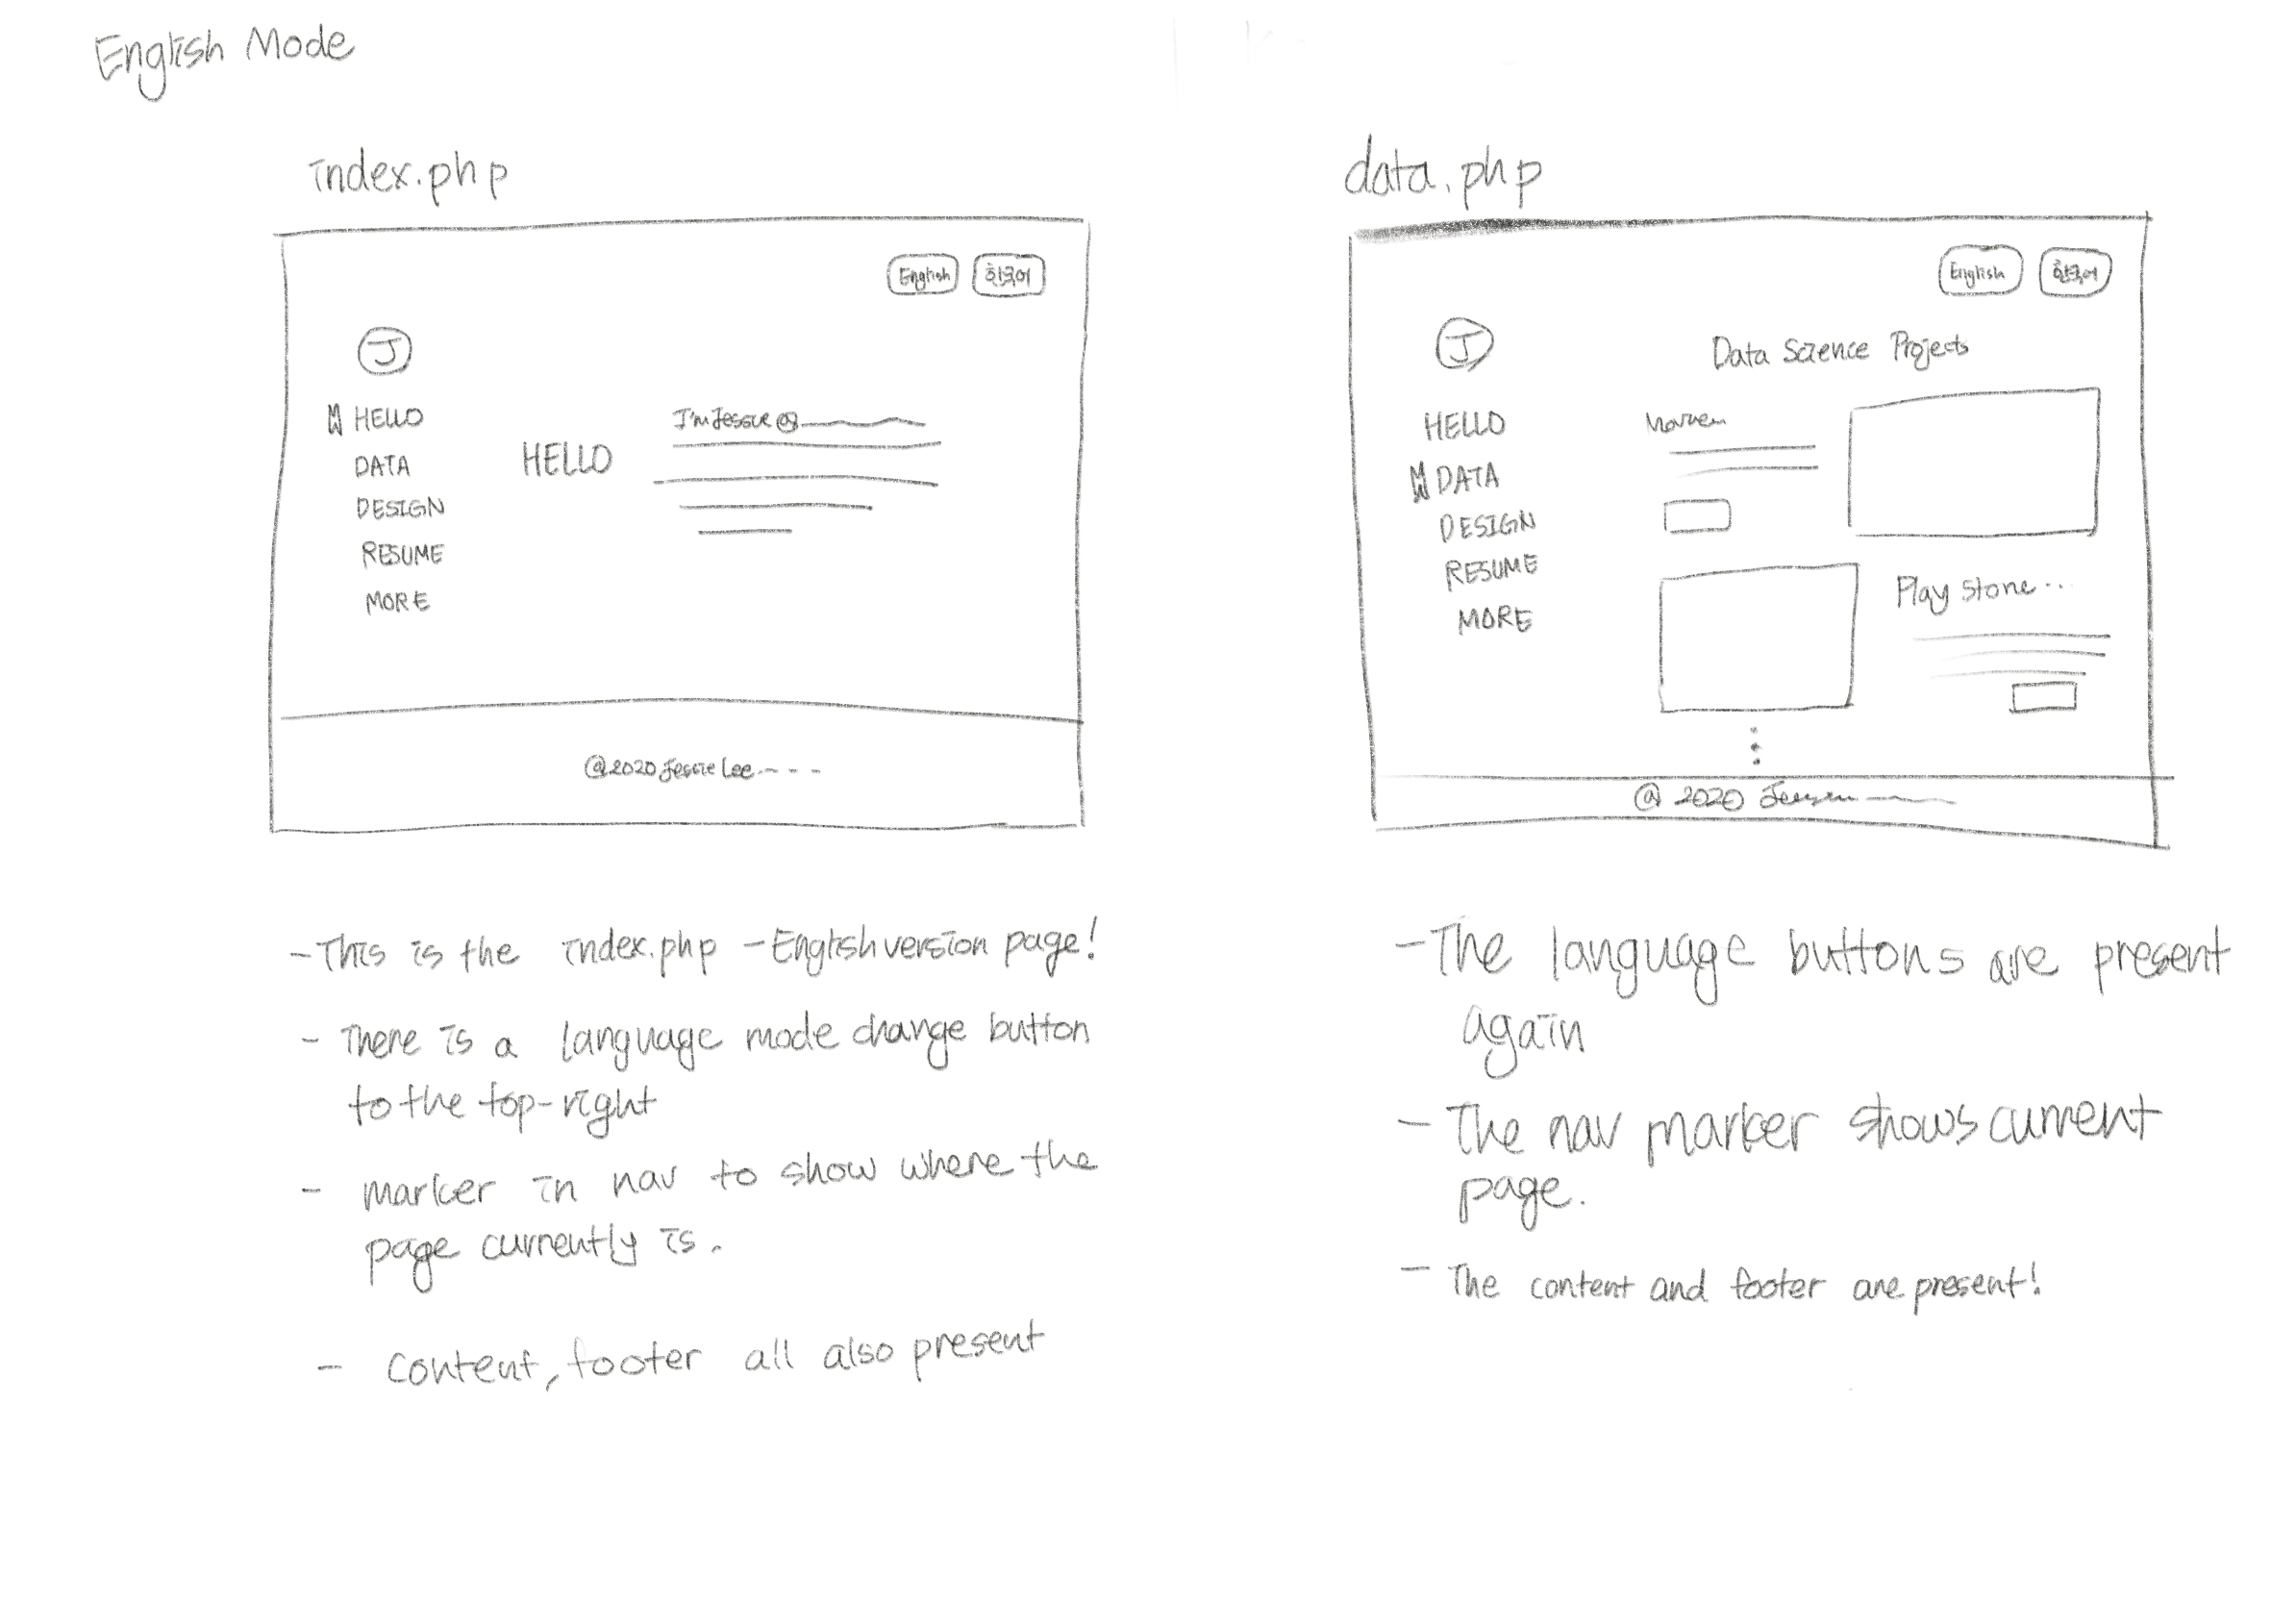 English Mode
index.php
English 한국어
J
HELLO
DATA
DESIGN
RESUME
MORE
HELLO
I'm Jessie @
@2020 Jessie Lee - - -
- This is the index.php - English version page!
- There is a language mode change button
to the top-right
- marker in nav to show where the
page currently is.
- content, footer all also present
data.php
English 한국어
J
HELLO
DATA
DESIGN
RESUME
MORE
Data Science Projects
Play Store ...
@ 2020
- The language buttons are present
again
- The nav marker shows current
page.
- The content and footer are present!